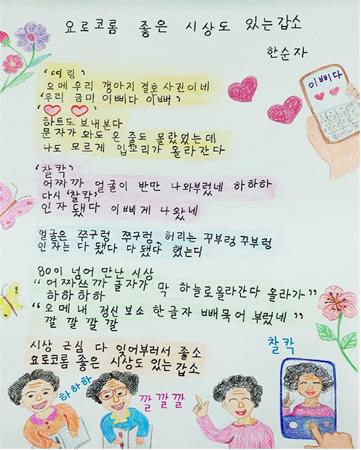 요로코롬 좋은 시상도 있는갑소
한순자
'띠링'
오메 우리 갱아지 결혼 사진이네
'우리 금미 이삐다 이뻐'
이삐다
하트도 보내본다
문자가 와도 온 줄도 몰랐었는데
나도 모르게 입꼬리가 올라간다
'찰칵'
어찌까 얼굴이 반만 나와부렀네 하하하
다시 '찰칵'
인자 됐다 이삐게 나왔네
얼굴은 쭈구렁 쭈구렁, 허리는 꾸부렁 꾸부렁
인자는 다 됐다 다 됐다 했는디
80이 넘어 만난 시상
"어찌쓰까 글자가 막 하늘로 올라간다 올라가"
하하하하
"오메 내 정신 보소 한글자 빼묵어 부렀네"
깔 깔 깔 깔
시상 근심 다 잊어부러서 좋소
요로코롬 좋은 시상도 있는갑소
찰칵
하하하
깔깔깔